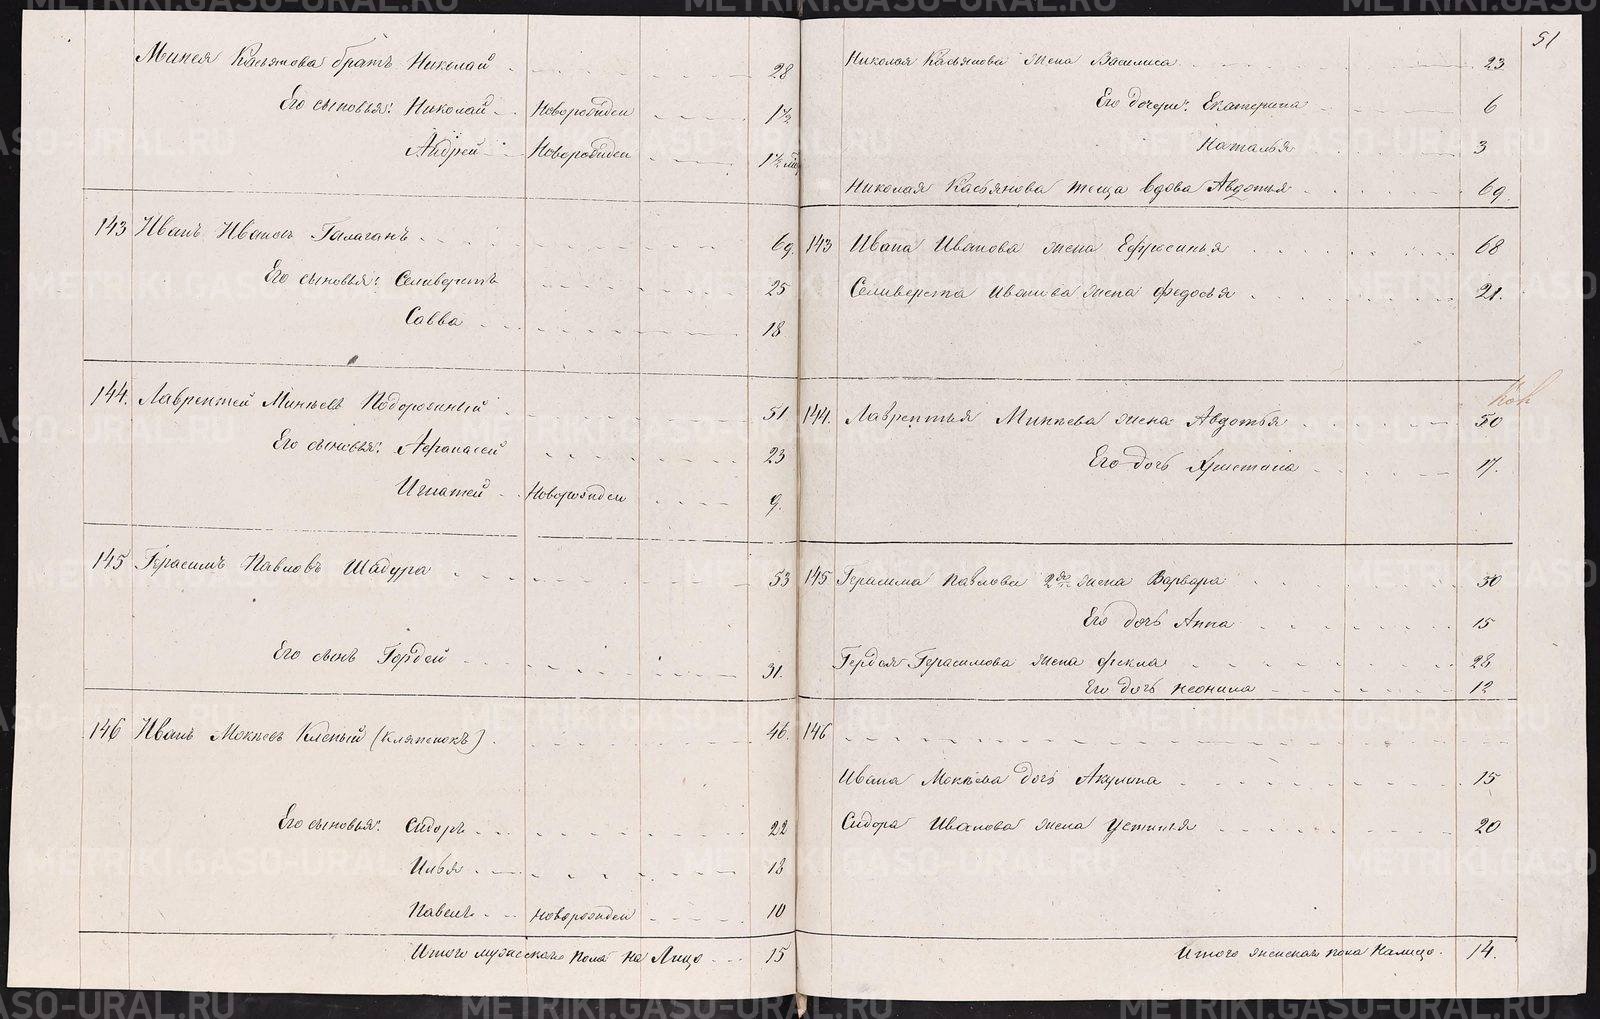 Минея Касьянова братъ Николай 28
Его сыновья: Николай Новорожден 1½
Андрей Новорожден 1½
143 Иванъ Ивановъ Галаганъ 69.
Его сыновья: Селиверстъ 25
Савва 18
144. Лаврентей Минѣевъ Подорожный 51.
Его сыновья: Афанасей 23
Игнатей Новорожден 9.
145 Герасимъ Павловъ Шадура 53
Его сынъ Гордей 31.
146 Иванъ Мокѣевъ Клепый (Кляпенокъ) 46.
Его сыновья: Сидоръ 22
Илья 13
Павелъ новорожден 10
Итого мужескаго пола на Лицо 15
51
Николая Касьянова жена Василиса 23.
Его дочери: Екатерина 6
Наталья 3
Николая Касьянова теща вдова Авдотья 69.
143 Ивана Иванова жена Ефросинья 68
Селиверста Иванова жена Федосья 21.
144. Лаврентья Минѣева жена Авдотья 50
Его дочь Христина 17.
145 Герасима Павлова 2я жена Варвара 30
Его дочь Анна 15
Гордея Герасимова жена Фекла 28
Его дочь Неонила 12
146
Ивана Мокѣева дочь Акулина 15
Сидора Иванова жена Устинья 20
Итого женскаго пола на лицо. 14.
METRIKI.GASO-URAL.RU